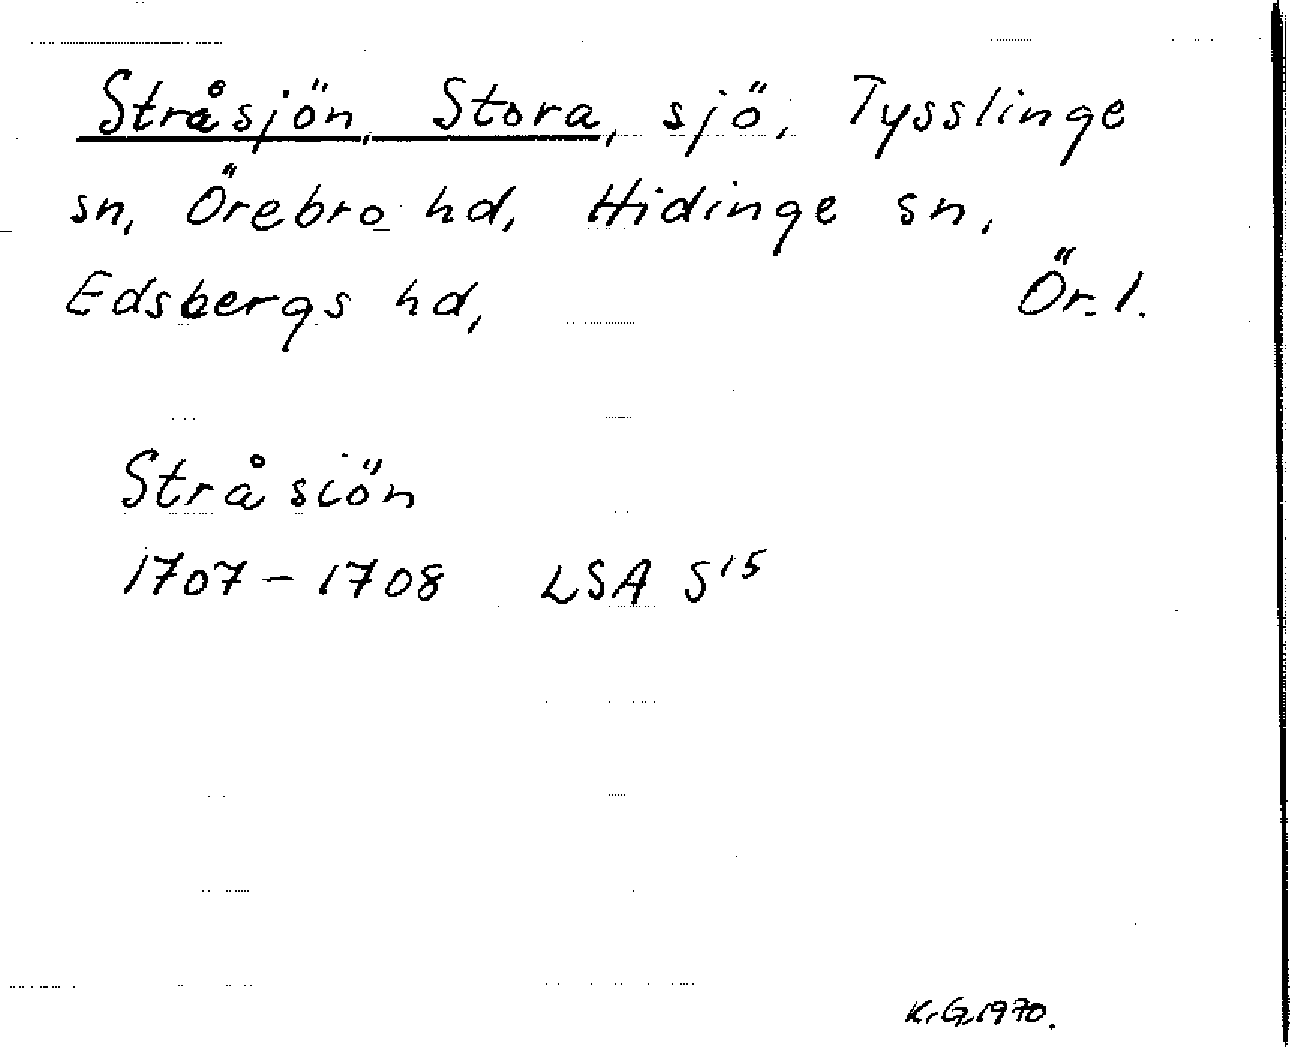 Stråsjön, Stora, sjö, Tysslinge
sn, Örebro hd, Hidinge sn,
Edsbergs hd, Ör. l.
Stråsiön
1707-1708 LSA S¹⁵
K.G. 1970.